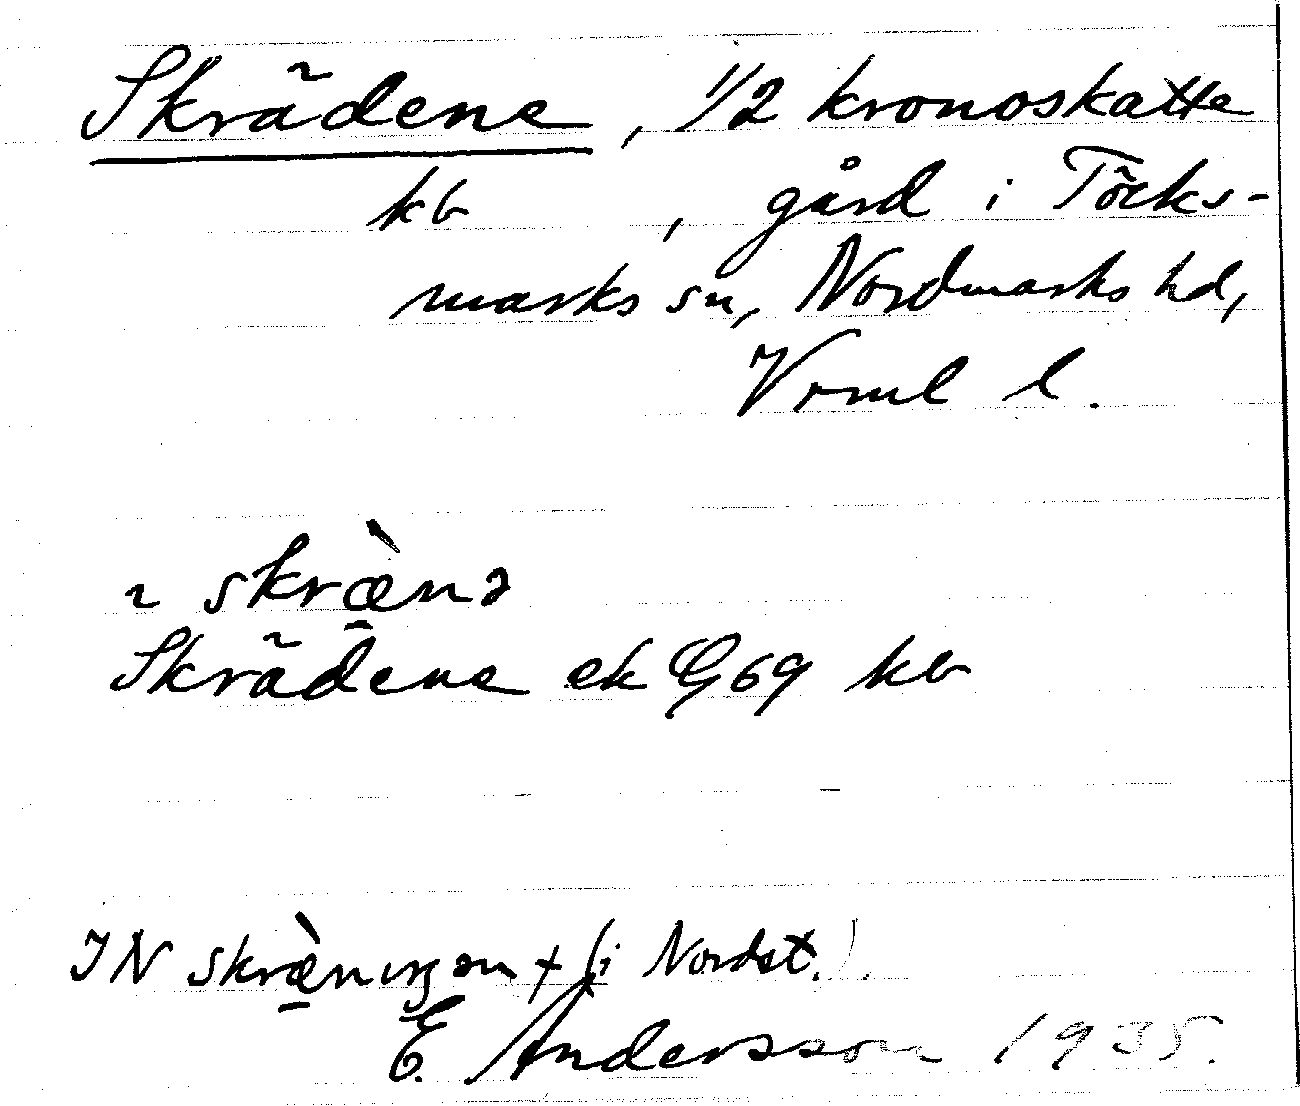 Skrädene, 1/2 kronoskatte
kb, gård i Töcks-
marks sn, Nordmarks hd,
Vrml l.
~ skræ̠̀nə
Skrädene ek G69 kb
IN skræ̠̀nıŋən + (i Nordst.).
E. Andersson 1935.